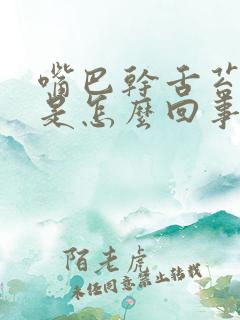 嘴巴幹舌苔
是怎麽回事
陌老虎
未经同意禁止转载